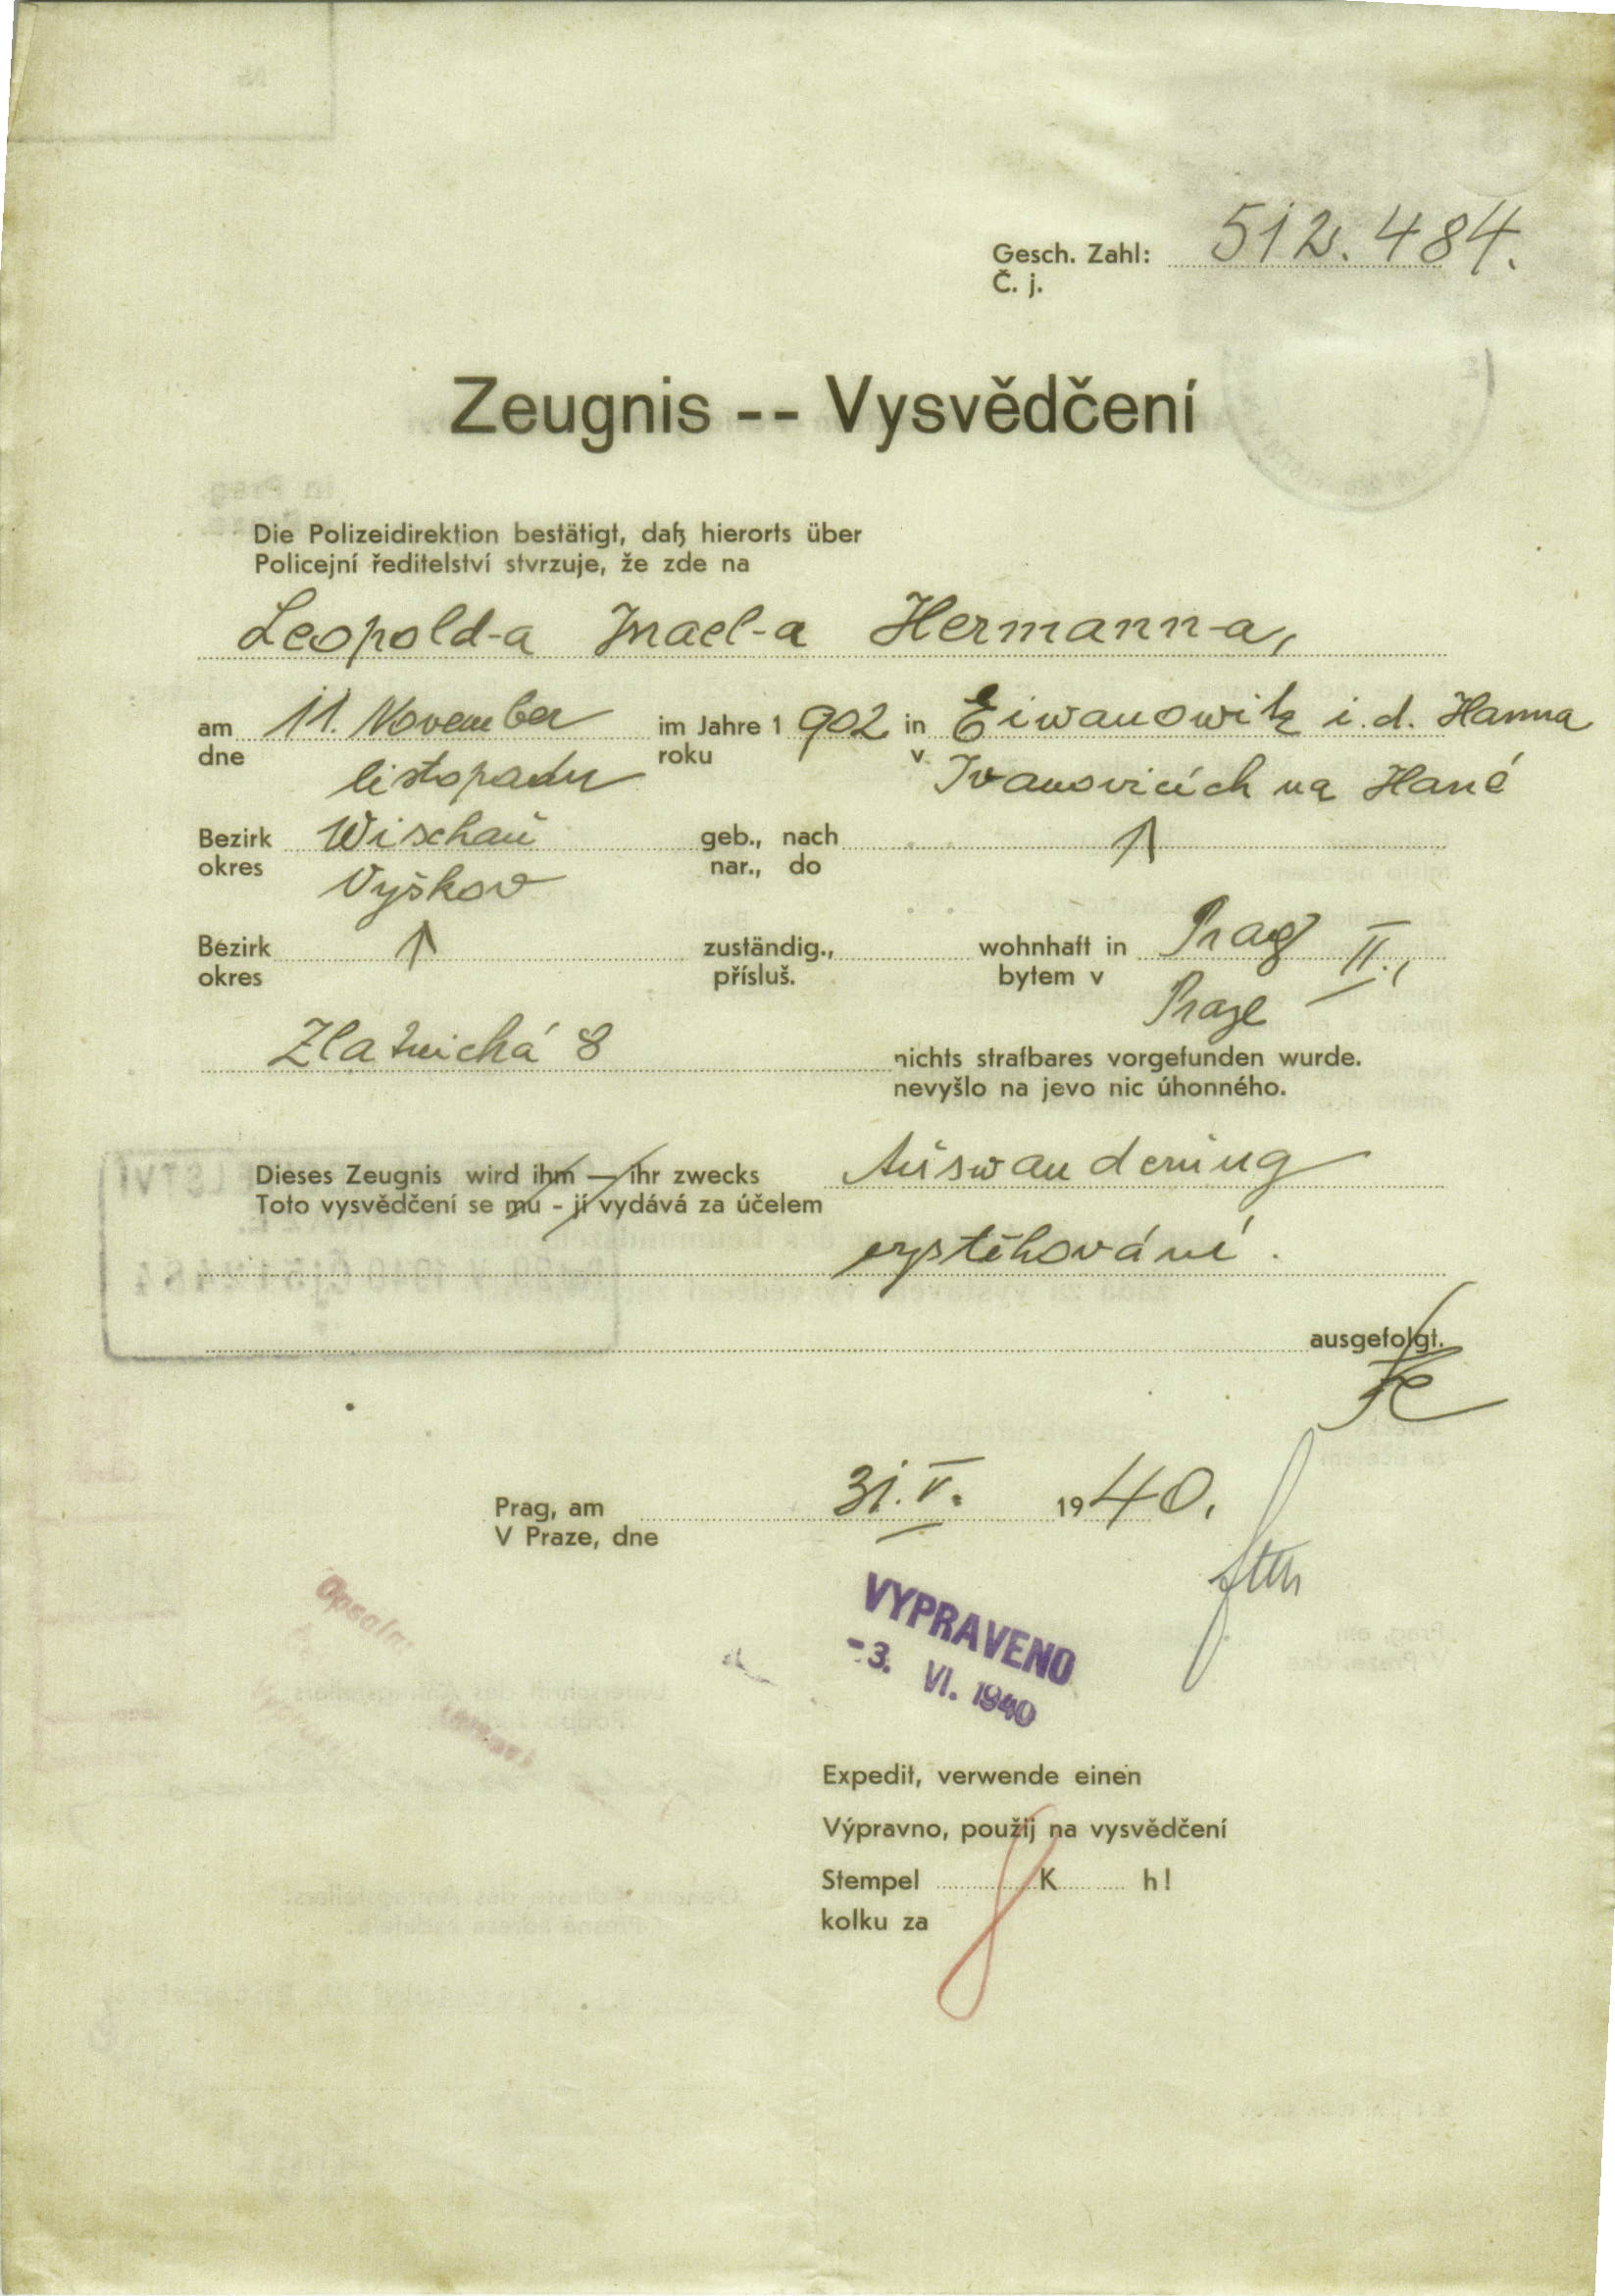 Gesch. Zahl: 512.484.
Č. j.
Zeugnis -- Vysvědčení
Die Polizeidirektion bestätigt, daß hierorts über
Policejní ředitelství stvrzuje, že zde na
Leopold-a Israel-a Hermann-a,
am 11. November im Jahre 1 902 in Eiwanowitz i. d. Hanna
dne listopadu roku v Ivanovicích na Hané
Bezirk Wischau geb., nach ↑
okres Vyškov nar., do
Bezirk ↑ zuständig., wohnhaft in Prag II.,
okres přísluš. bytem v Praze
Zlatnická 8 nichts strafbares vorgefunden wurde.
nevyšlo na jevo nic úhonného.
Dieses Zeugnis wird ihm — ihr zwecks Auswanderung
Toto vysvědčení se mu - jí vydává za účelem
vystěhování.
ausgefolgt.
Prag, am 31. V. 1940.
V Praze, dne
VYPRAVENO
-3. VI. 1940
Expedit, verwende einen
Výpravno, použij na vysvědčení
Stempel K h!
kolku za